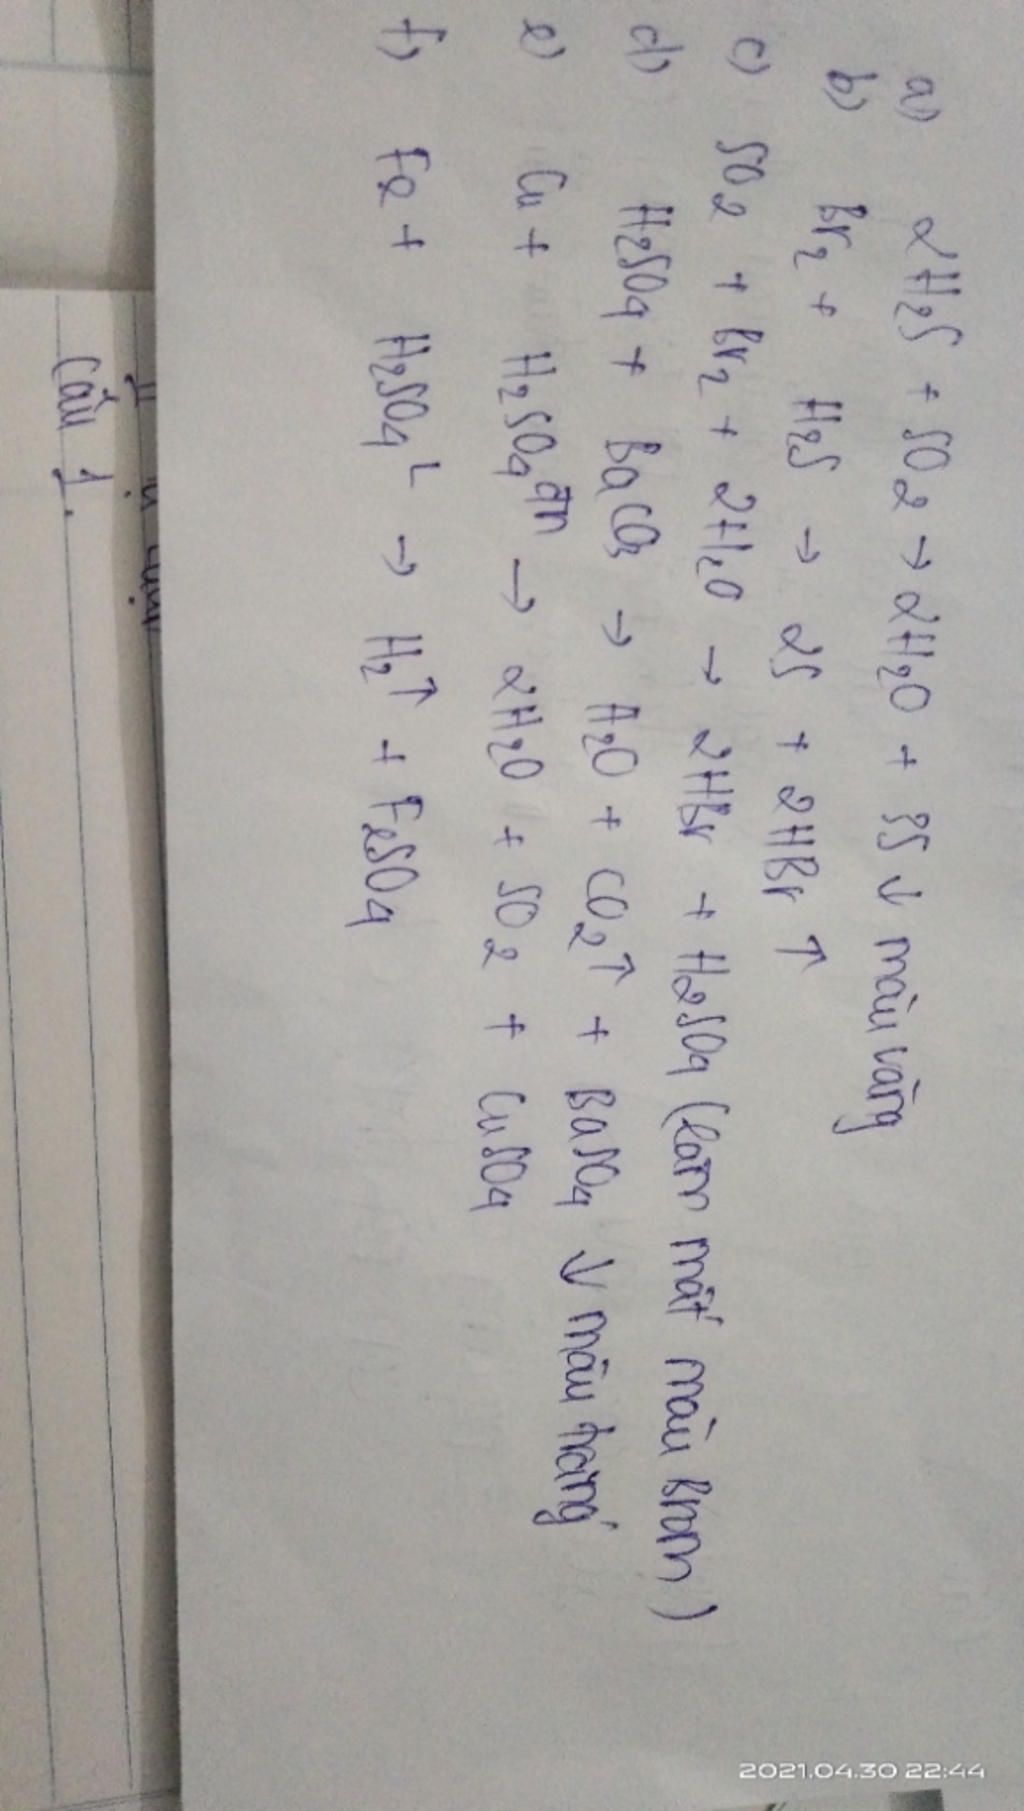 a) 2H₂S + SO₂ → 2H₂O + 3S ↓ màu vàng
b) Br₂ + H₂S → 2S + 2HBr ↑
c) SO₂ + Br₂ + 2H₂O → 2HBr + H₂SO₄ (làm mất màu Brom)
d) H₂SO₄ + BaCO₃ → H₂O + CO₂↑ + BaSO₄ ↓ màu trắng
e) Cu + H₂SO₄ đn → 2H₂O + SO₂ + CuSO₄
f) Fe + H₂SO₄ L → H₂↑ + FeSO₄
Câu 1.
2021.04.30 22:44